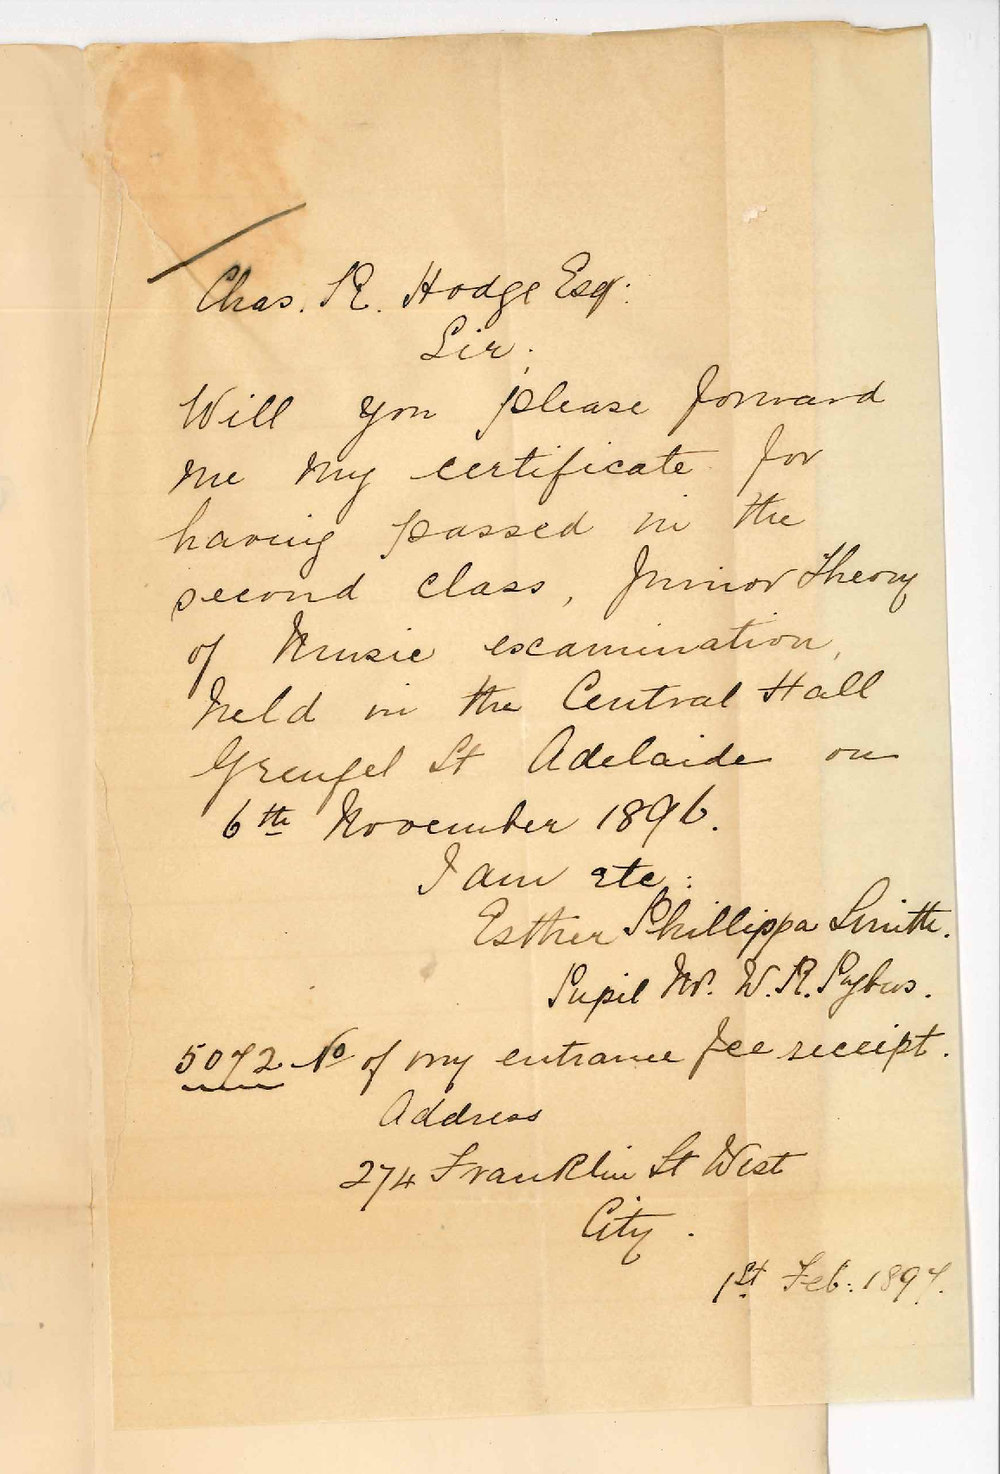 Chas. R. Hodge Esq:
Sir.
Will you please forward
me my certificate for
having passed in the
second class, Junior Theory
of Music escamination,
held in the Central Hall
Grenfel St Adelaide on
6th November 1896.
I am etc:
Esther Phillippa Smith.
Pupil Mr. W. R. Pybus.
5072 No of my entrance fee receipt.
Address
274 Franklin St West
City.
1st Feb: 1897.